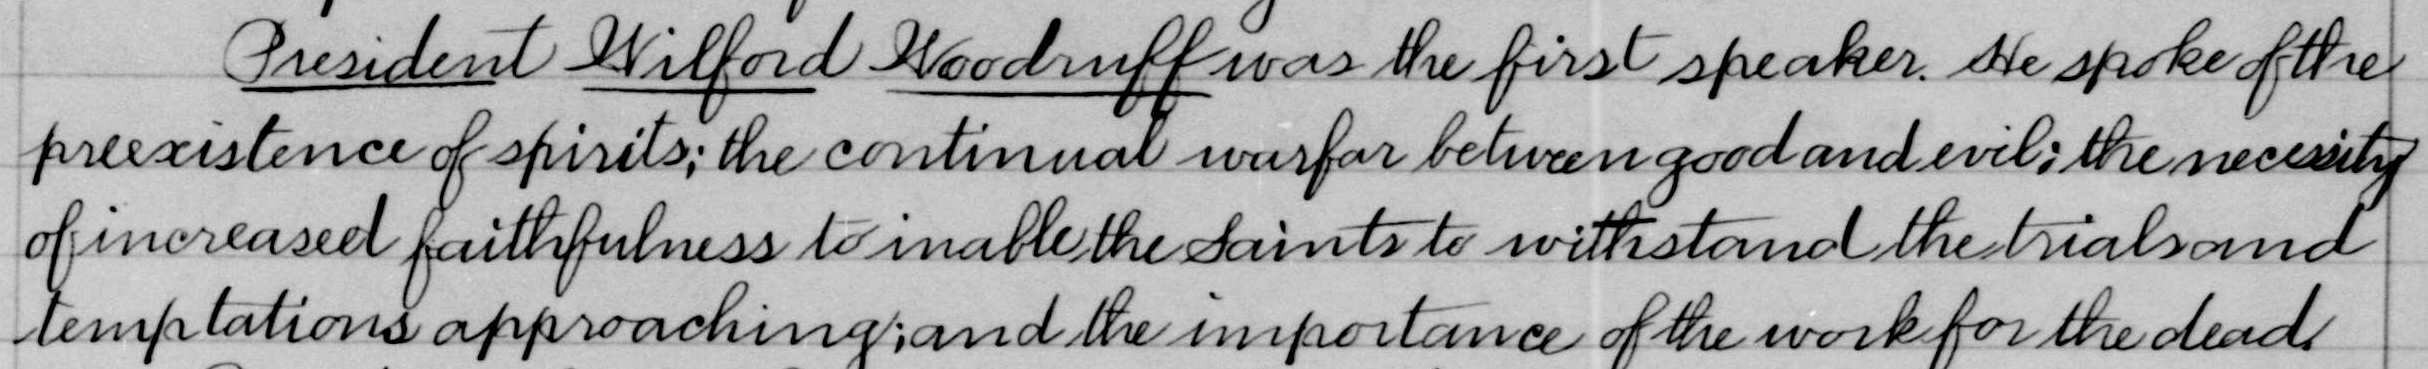 President Wilford Woodruff was the first speaker. He spoke of the
preexistence of spirits; the continual warfar between good and evil; the necessity
of increased faithfulness to inable the Saints to withstand the trials and
temptations approaching; and the importance of the work for the dead.